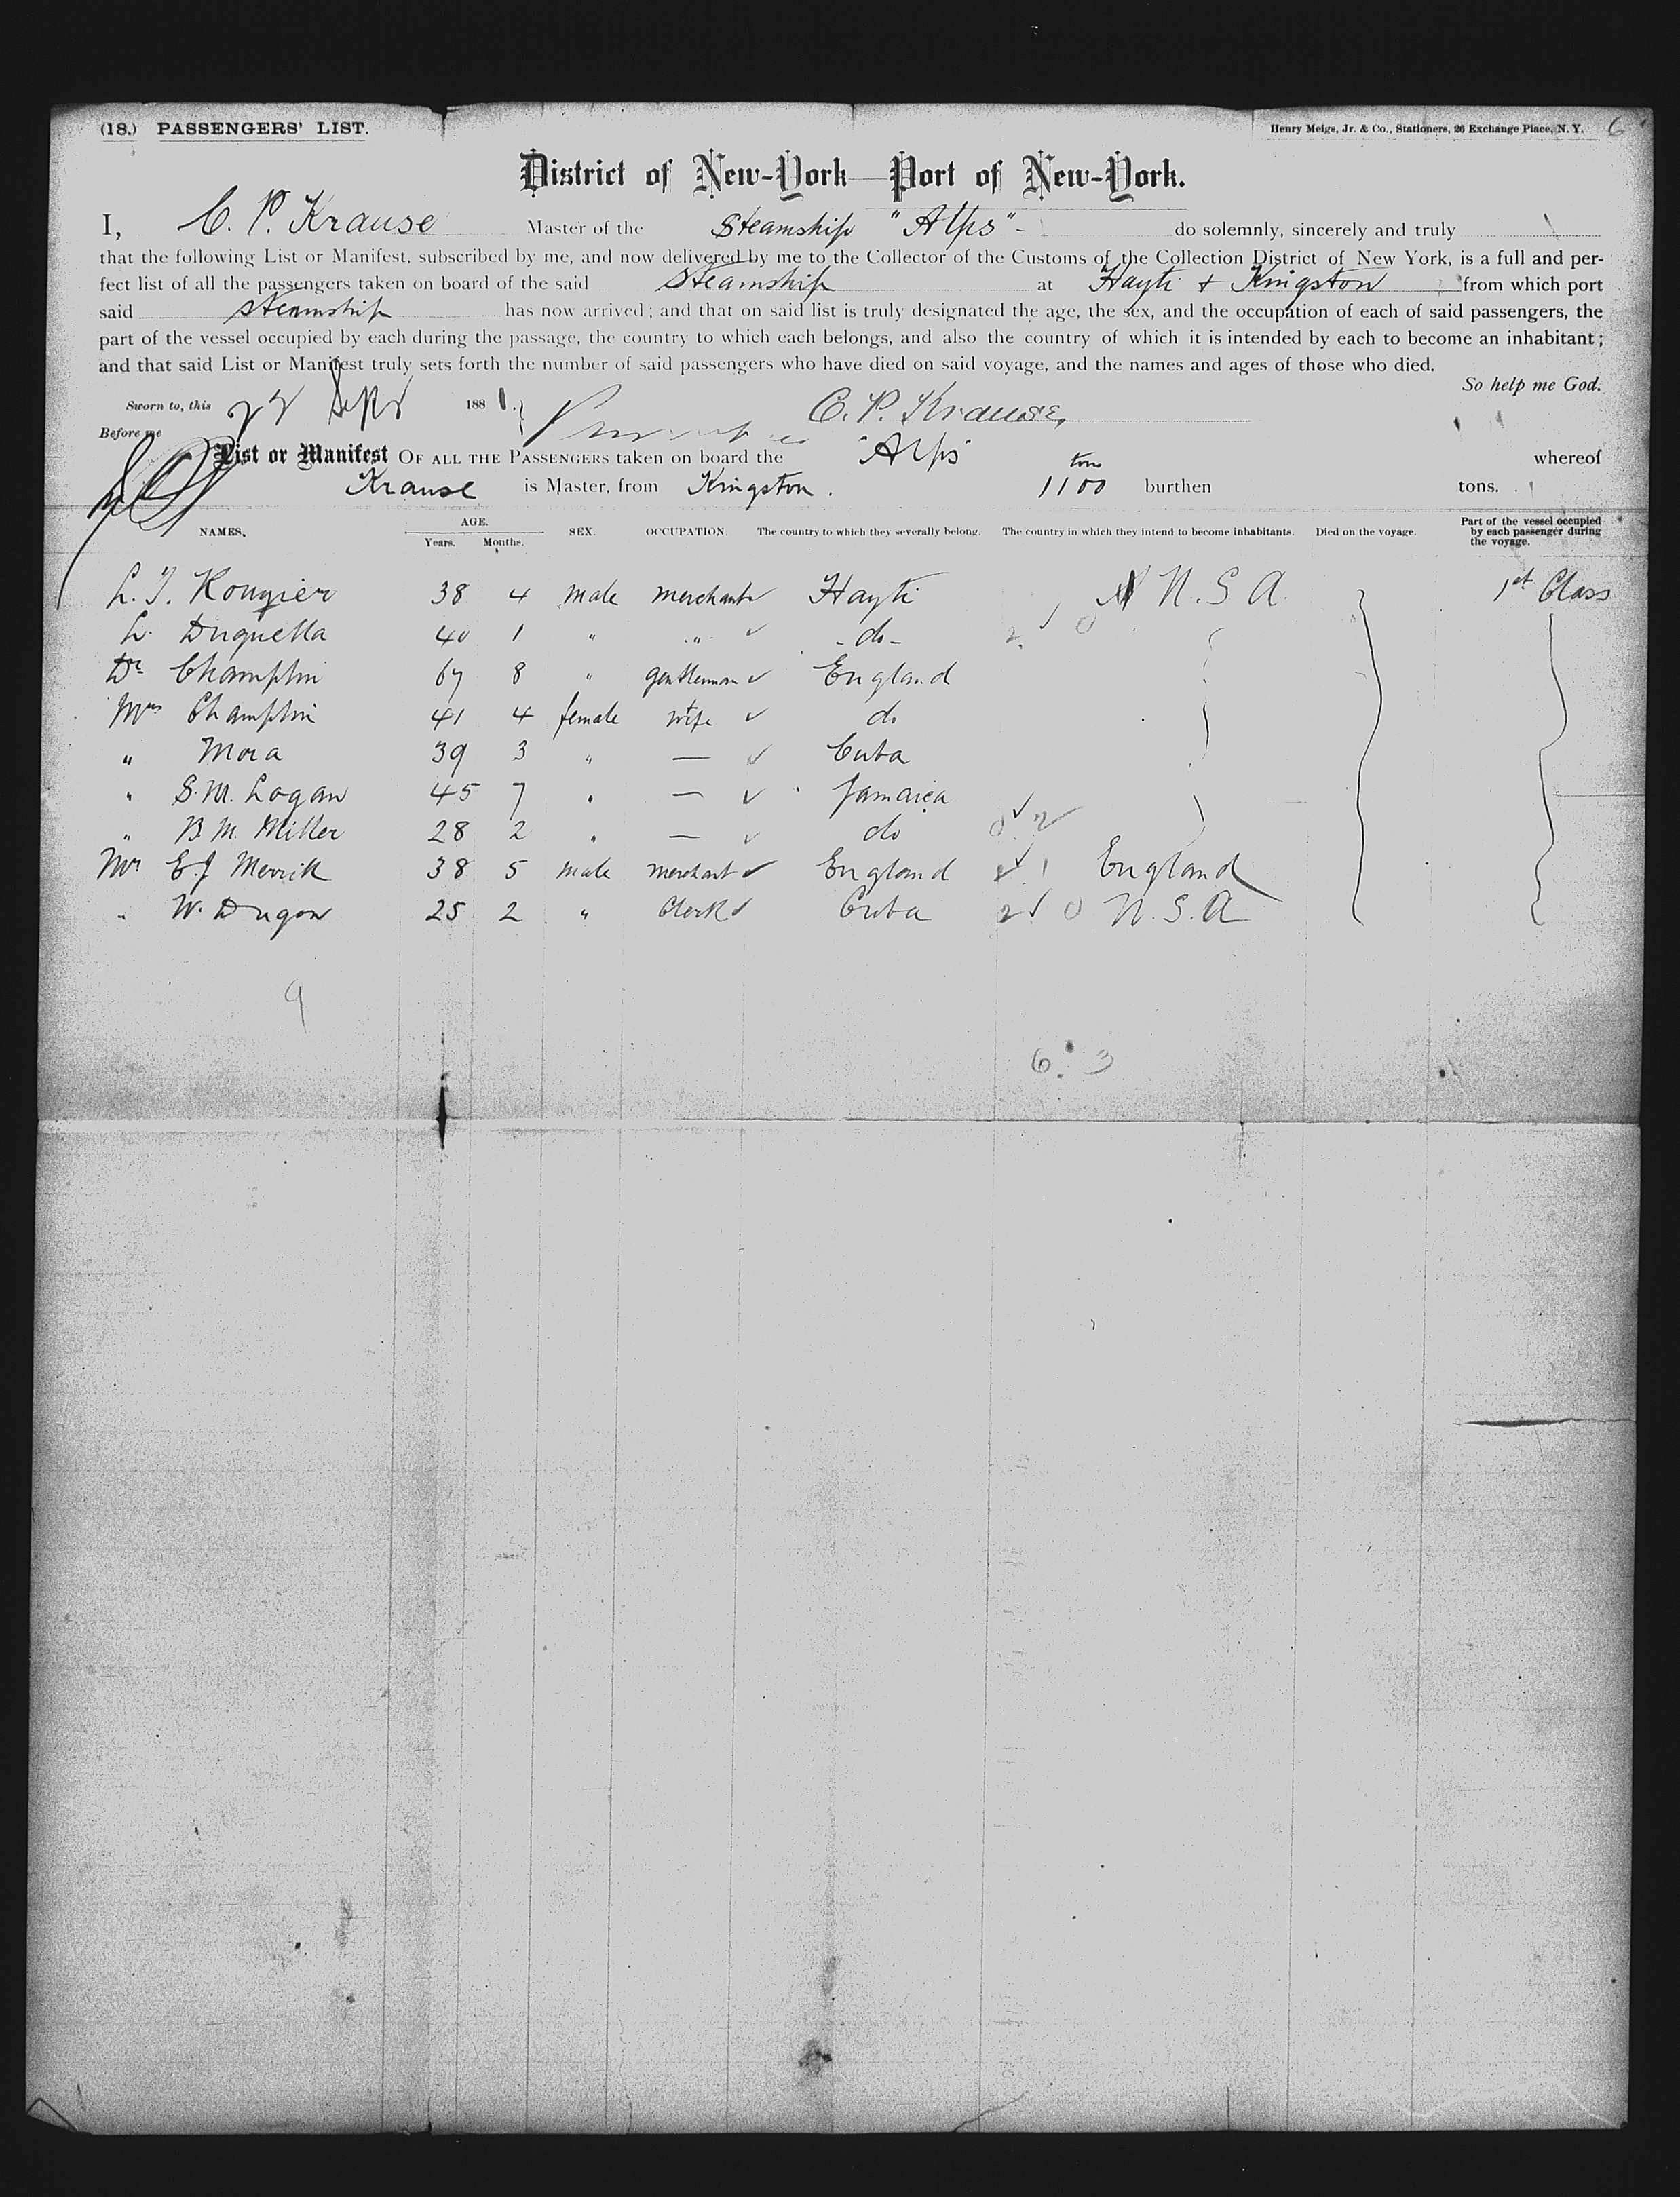 (18.) PASSENGERS' LIST.
Henry Meigs, Jr. & Co., Stationers, 26 Exchange Place, N. Y. 6
District of New-York—Port of New-York.
I, C. P. Krause Master of the Steamship "Alps" do solemnly, sincerely and truly
that the following List or Manifest, subscribed by me, and now delivered by me to the Collector of the Customs of the Collection District of New York, is a full and per-
fect list of all the passengers taken on board of the said Steamship at Hayti & Kingston from which port
said Steamship has now arrived; and that on said list is truly designated the age, the sex, and the occupation of each of said passengers, the
part of the vessel occupied by each during the passage, the country to which each belongs, and also the country of which it is intended by each to become an inhabitant;
and that said List or Manifest truly sets forth the number of said passengers who have died on said voyage, and the names and ages of those who died.
So help me God.
Sworn to, this Sept 1881. C. P. Krause,
Before me
List or Manifest OF ALL THE PASSENGERS taken on board the "Alps" whereof
Krause is Master, from Kingston. 1100 tons burthen tons.
NAMES. AGE. Years. Months. SEX. OCCUPATION. The country to which they severally belong. The country in which they intend to become inhabitants. Died on the voyage. Part of the vessel occupied by each passenger during the voyage.
L. T. Rougier 38 4 male merchant Hayti U.S.A. 1st Class
L. Duquella 40 1 " " -do- 2 0
Dr Champlin 67 8 " gentleman England
Mrs Champlin 41 4 female wife do
" Mora 39 3 " — Cuba
" S. M. Logan 45 7 " — Jamaica
" B. M. Miller 28 2 " — do 0 2
Mr E. J. Merrill 38 5 male merchant England 1 England
" W. Dugan 25 2 " Clerk Cuba 2 0 U.S.A
9
6. 3